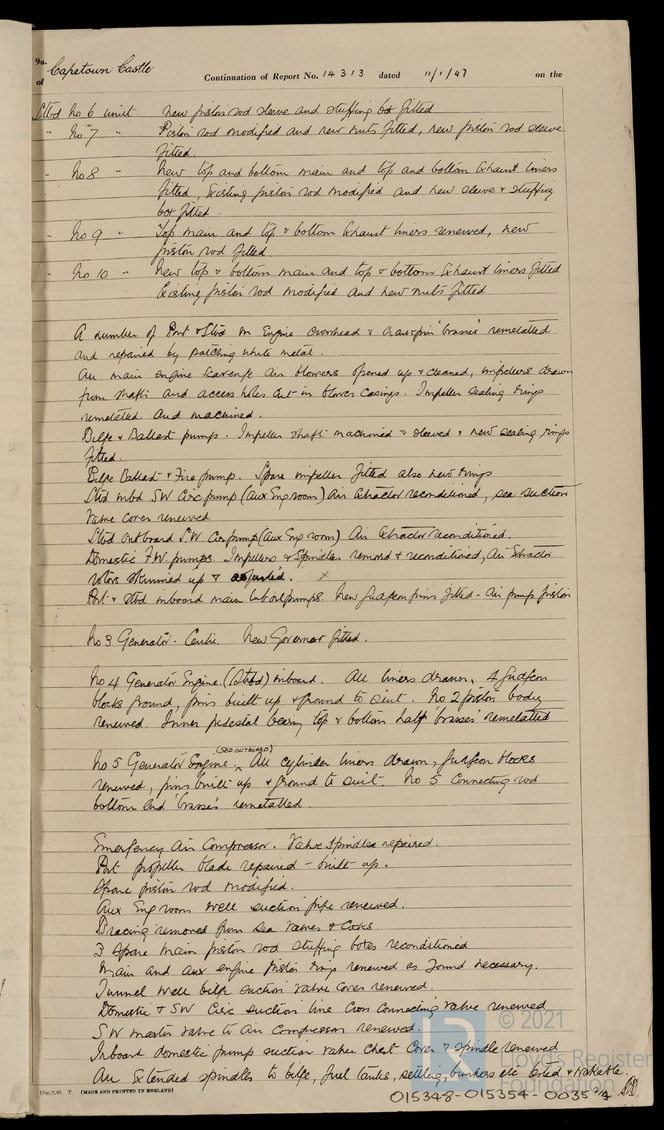 9a.
of Capetown Castle
Continuation of Report No. 14313 dated 11/1/47 on the
Stbd No 6 unit new piston rod sleeve and stuffing box fitted
" No 7 " Piston rod modified and new nuts fitted, new piston rod sleeve
fitted.
" No 8 " New top and bottom main and top and bottom Exhaust liners
fitted, Existing piston rod modified and new sleeve & stuffing
box fitted.
" No 9 " Top main and top & bottom Exhaust liners renewed, new
piston rod fitted.
" No 10 " New top & bottom main and top & bottom Exhaust liners fitted
Existing piston rod modified and new nuts fitted
A number of Port & Stbd M Engine Crosshead & Crankpin 'brasses' remetalled
and repaired by patching white metal.
All main engine Scavenge air blowers opened up & cleaned, impellers drawn
from shafts and access holes cut in blower casings. Impeller sealing rings
remetalled and machined.
Bilge & Ballast pumps. Impeller shaft machined & sleeved & new sealing rings
fitted.
Bilge Ballast & Fire pump. Spare impeller fitted also new rings
Stbd inbd SW Circ pump (Aux Eng room) Air Extractor reconditioned, sea suction
valve cover renewed
Stbd outboard S.W. Circ pump (Aux Eng room) Air Extractor reconditioned.
Domestic F.W. pumps. Impellers & Spindles removed & reconditioned, Air Extractor
rotors skimmed up & adjusted. x
Port & Stbd inboard main lub oil pumps. New gudgeon pins fitted - Air pump piston
No 3 Generator. Centre. New Governor fitted.
No 4 Generator Engine. (Stbd) inboard. All liners drawn, 4 gudgeon
blocks ground, pins built up & ground to suit. No 2 piston body
renewed. Inner pedestal bearing top & bottom half 'brasses' remetalled
(SBD. OUTBOARD)
No 5 Generator Engine. All cylinder liners drawn, gudgeon blocks
renewed, pins built up & ground to suit. No 5 Connecting rod
bottom End 'brasses' remetalled.
Emergency Air Compressor. Valve Spindles repaired.
Port propeller blade repaired - built up.
Spare piston rod modified.
Aux Eng room well suction pipe renewed.
Bracing removed from Sea Valves & Cocks.
3 Spare main piston rod stuffing boxes reconditioned
Main and aux engine piston rings renewed as found necessary.
Tunnel well bilge suction valve cover renewed.
Domestic & SW Circ suction line Cross Connecting Valve renewed
S W master valve to Air Compressor renewed.
Inboard domestic pump suction valve Chest Cover & Spindle renewed
All Extended spindles to bilge, fuel tanks, settling, bunkers etc tested & workable.
10m.2.46. T. (MADE AND PRINTED IN ENGLAND)
015348-015354-0035 2/4
© 2021
Lloyd's Register
Foundation